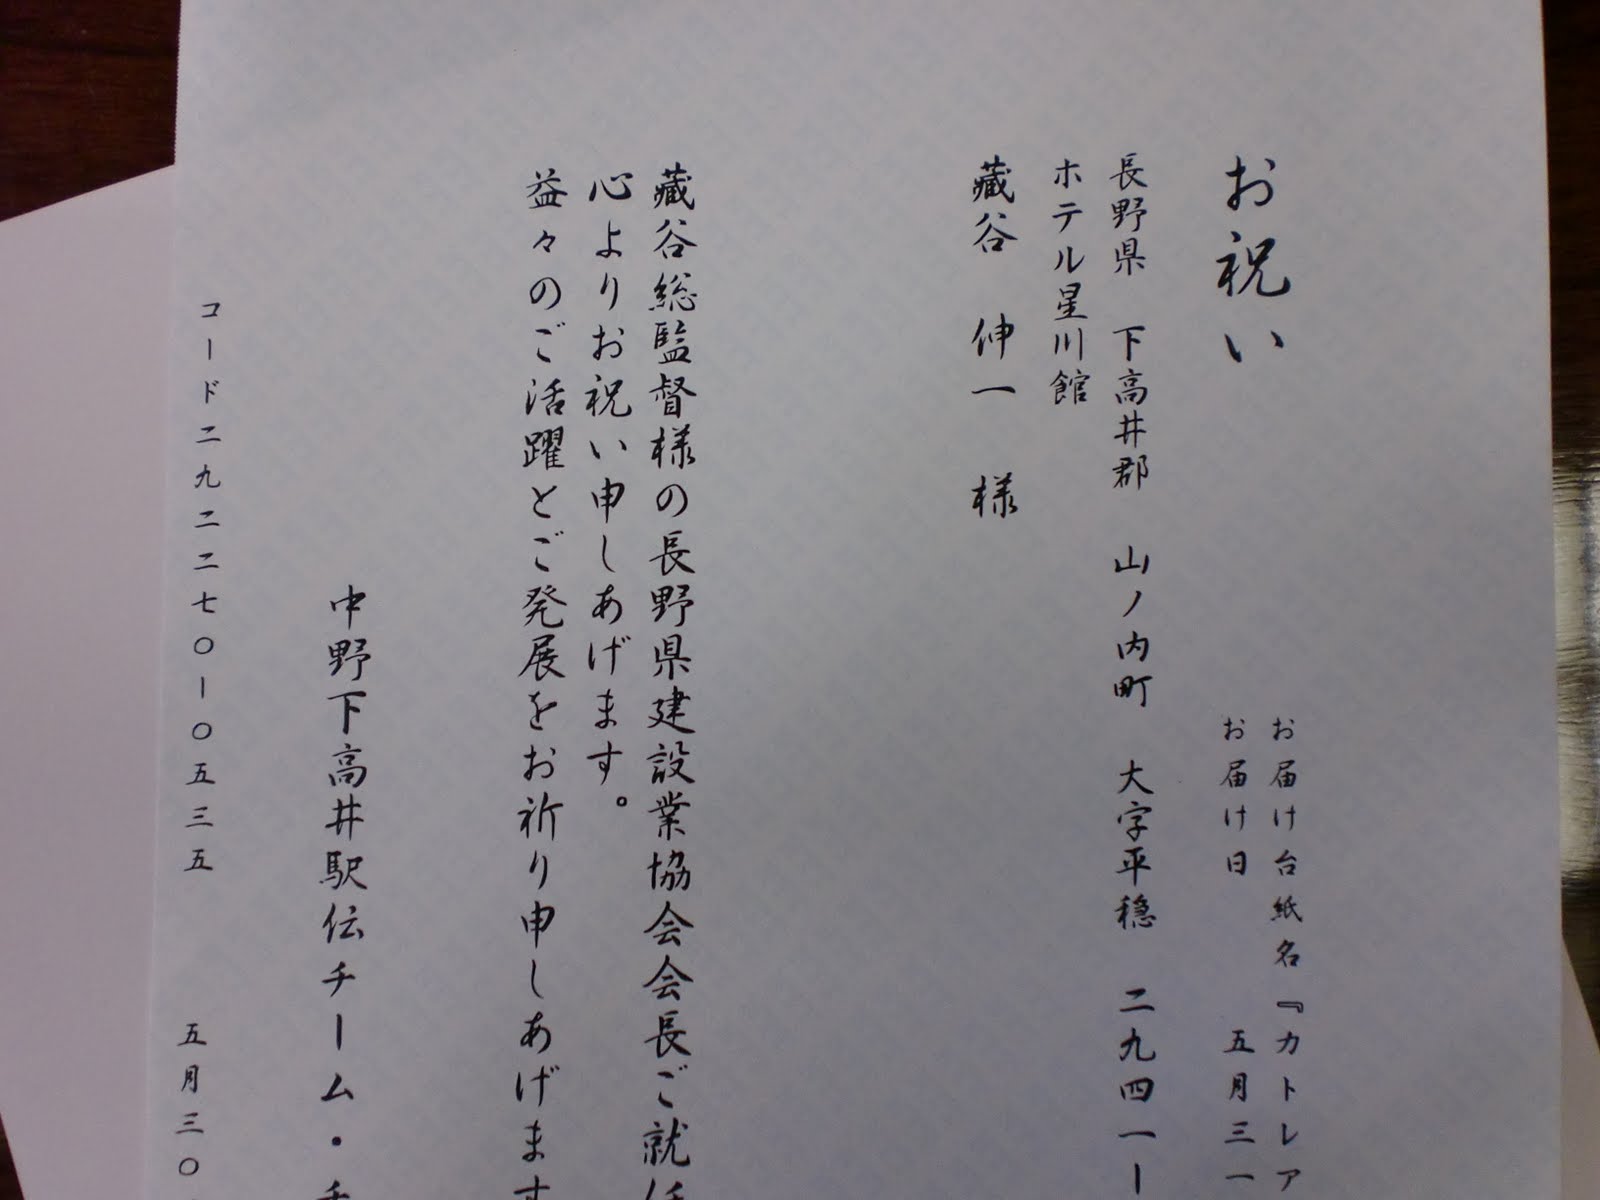 お届け台紙名『カトレア
お祝い
お届け日 五月三一
長野県 下高井郡 山ノ内町 大字平穏 二九四一ー
ホテル星川館
藏谷 伸一 様
藏谷総監督様の長野県建設業協会会長ご就任
心よりお祝い申しあげます。
益々のご活躍とご発展をお祈り申しあげます
中野下高井駅伝チーム・チ
コード二九二二七〇ー〇五三五 五月三〇